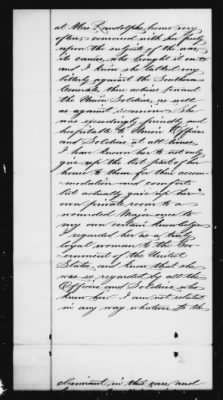 at Mrs. Randolphs, home very
often conversed with her freely
upon the subject of the war
its causes, who brought it on &c
and I know she talked very
bitterly against the Southern
Generals, their actions toward
the Union Soldiers, as well
as against secession. She
was exceedingly friendly and
hospitable to Union Officers
and Soldiers at all times
I have known her to not only
give up the best part of her
home to them for their accom-
modation and comfort
but actually gave up her
own private room to a
wounded Major once to
my own certain knowledge
I regarded her as a truly
loyal woman to the Gov-
ernment of the United
States, and know that she
was so regarded by all the
Officers and Soldiers who
knew her. I am not related
in any way whatever to the
claimant in this case and